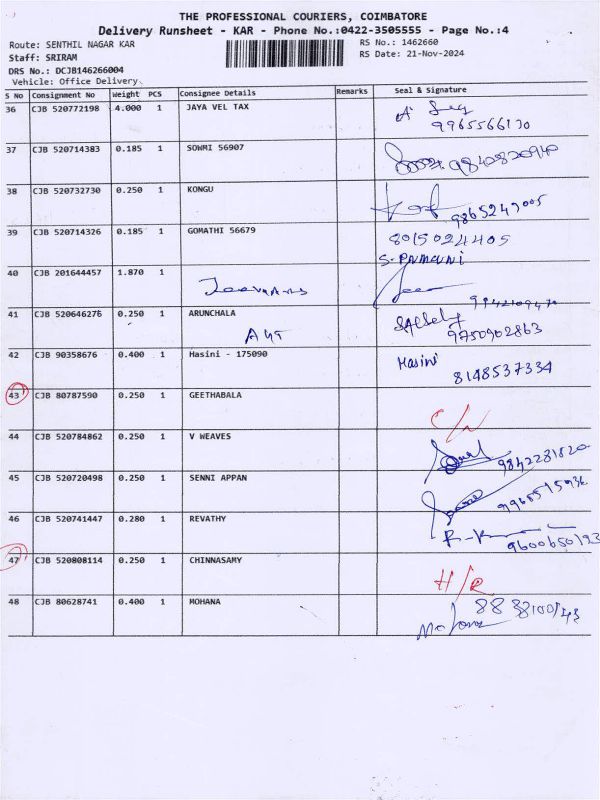 THE PROFESSIONAL COURIERS, COIMBATORE
Delivery Runsheet - KAR - Phone No.:0422-3505555 - Page No.:4
Route: SENTHIL NAGAR KAR
RS No.: 1462660
Staff: SRIRAM
RS Date: 21-Nov-2024
DRS No.: DCJB146266004
Vehicle: Office Delivery
S No Consignment No Weight PCS Consignee Details Remarks Seal & Signature
36 CJB 520772198 4.000 1 JAYA VEL TAX
9965566130
37 CJB 520714383 0.185 1 SOWMI 56907
9840820940
38 CJB 520732730 0.250 1 KONGU
9865247005
39 CJB 520714326 0.185 1 GOMATHI 56679
8015024405
40 CJB 201644457 1.870 1
41 CJB 520646276 0.250 1 ARUNCHALA
9750902863
42 CJB 90358676 0.400 1 Hasini - 175090 Hasini
8148537334
43 CJB 80787590 0.250 1 GEETHABALA
44 CJB 520784862 0.250 1 V WEAVES
9842281820
45 CJB 520720498 0.250 1 SENNI APPAN
46 CJB 520741447 0.280 1 REVATHY
9600650193
47 CJB 520808114 0.250 1 CHINNASAMY H/R
48 CJB 80628741 0.400 1 MOHANA